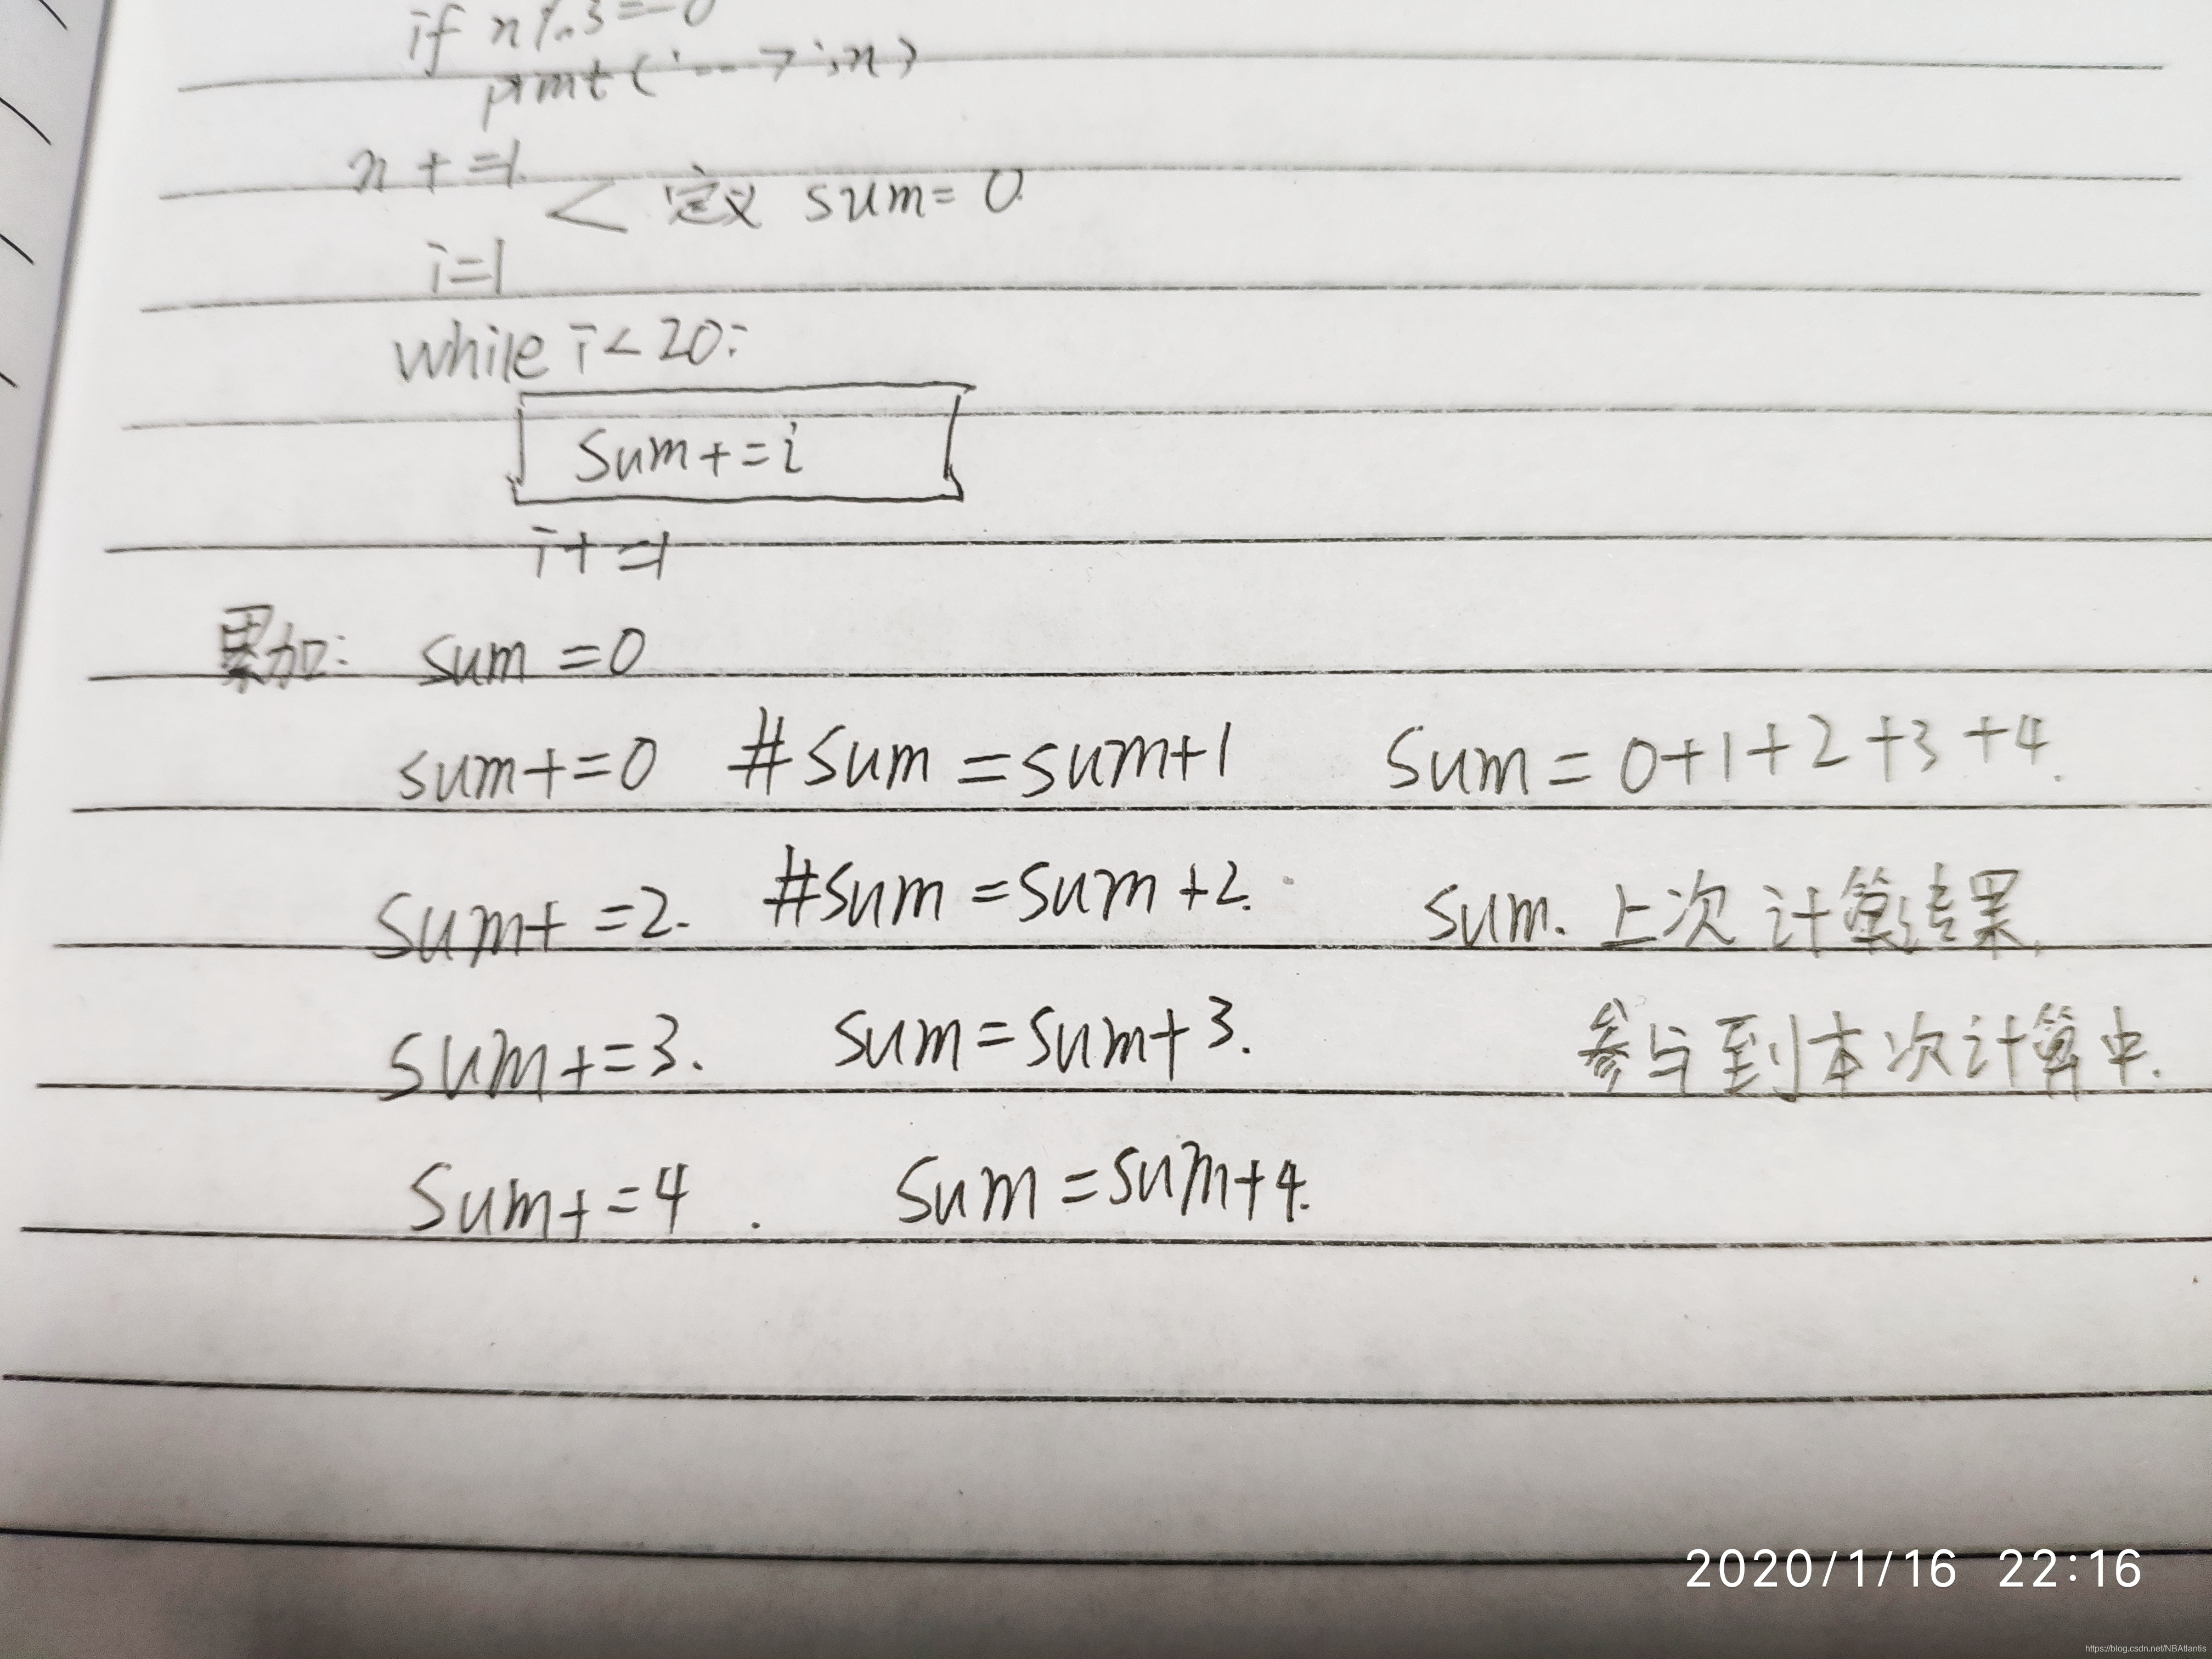 if n%3==0
print('--->',n)
n+=1
< 定义 sum=0
i=1
while i<20:
sum+=i
i+=1
累加: sum=0
sum+=0 #sum=sum+1 sum=0+1+2+3+4.
sum+=2. #sum=sum+2. sum.上次计算结果.
sum+=3. sum=sum+3. 参与到本次计算中.
sum+=4. sum=sum+4.
2020/1/16 22:16
https://blog.csdn.net/NBAtlantis